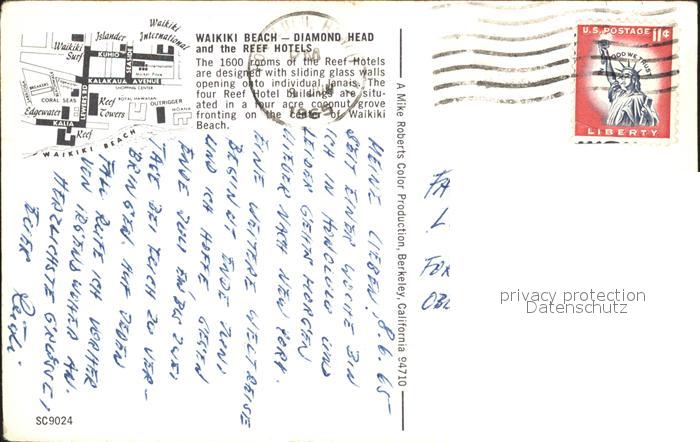 Waikiki Surf
Islander
Waikiki International
KUHIO
SEASIDE
KALAKAUA AVENUE
LEWERS RD
Market Place
SHOPPING CENTER
CORAL SEAS
ROYAL HAWAIIAN
OUTRIGGER
MOANA
Edgewater
Reef Towers
KALIA
Reef
WAIKIKI BEACH
WAIKIKI BEACH — DIAMOND HEAD
and the REEF HOTELS
The 1600 rooms of the Reef Hotels
are designed with sliding glass walls
opening onto individual lanais. The
four Reef Hotel buildings are situ-
ated in a four acre coconut grove
fronting on the center of Waikiki
Beach.
1965
U.S. POSTAGE 11¢
IN GOD WE TRUST
LIBERTY
A Mike Roberts Color Production, Berkeley, California 94710
8.6.65
MEINE LIEBEN!
SEIT EINER WOCHE BIN
ICH IN HONOLULU UND
LEIDER GEHTS MORGEN
WIEDER NACH NEW YORK.
EINE WEITERE WELTREISE
BEGINNT ENDE JUNI
UND ICH HOFFE, GEGEN
ENDE JULI EIN BIS ZWEI
TAGE BEI EUCH ZU VER-
BRINGEN. AUF JEDEN
FALL RUFE ICH VORHER
VON IRGENDWOHER AN.
HERZLICHSTE GRÜSSE,
EUER
FA
L
FOR
OBE
privacy protection
Datenschutz
SC9024